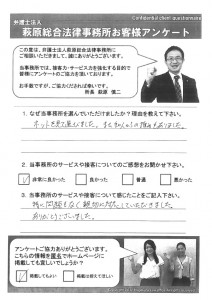 Confidential client questionnaire
弁護士法人
萩原総合法律事務所お客様アンケート
この度は、弁護士法人萩原総合法律事務所に
ご相談いただきまして、誠にありがとうございます。
当事務所では、接客力・サービス力を強化する目的で
皆様にアンケートのご協力を頂いております。
お手数ですが、ご協力くだされば幸いです。
所長 萩原 慎二
1. なぜ当事務所を選んでいただけましたか？理由を教えて下さい。
ネットを見て選びました。
2. 当事務所のサービスや接客についてのご感想をお聞かせ下さい。
非常に良かった 良かった 普通 悪かった
3. 当事務所のサービスや接客について感じたことをご記入下さい。
特に問題もなく親切に対応していただきました。
ありがとうございました。
アンケートにご協力ありがとうございます。
こちらの情報を匿名でホームページに
掲載しても宜しいでしょうか？
掲載してもよい 掲載は控えてほしい